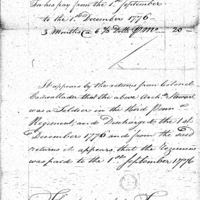 for his pay from the 1st September
to the 1st December 1776
3 Months @ 6⅔ Dolls P Mo. 20 -
It appears by the returns from Colonel
Cadwallader that the above
was a Soldier in the third Penn
Regiment, and Discharged the 1st
December 1776 and from the said
returns it appears, that the Regiment
was paid to the 1st September 1776